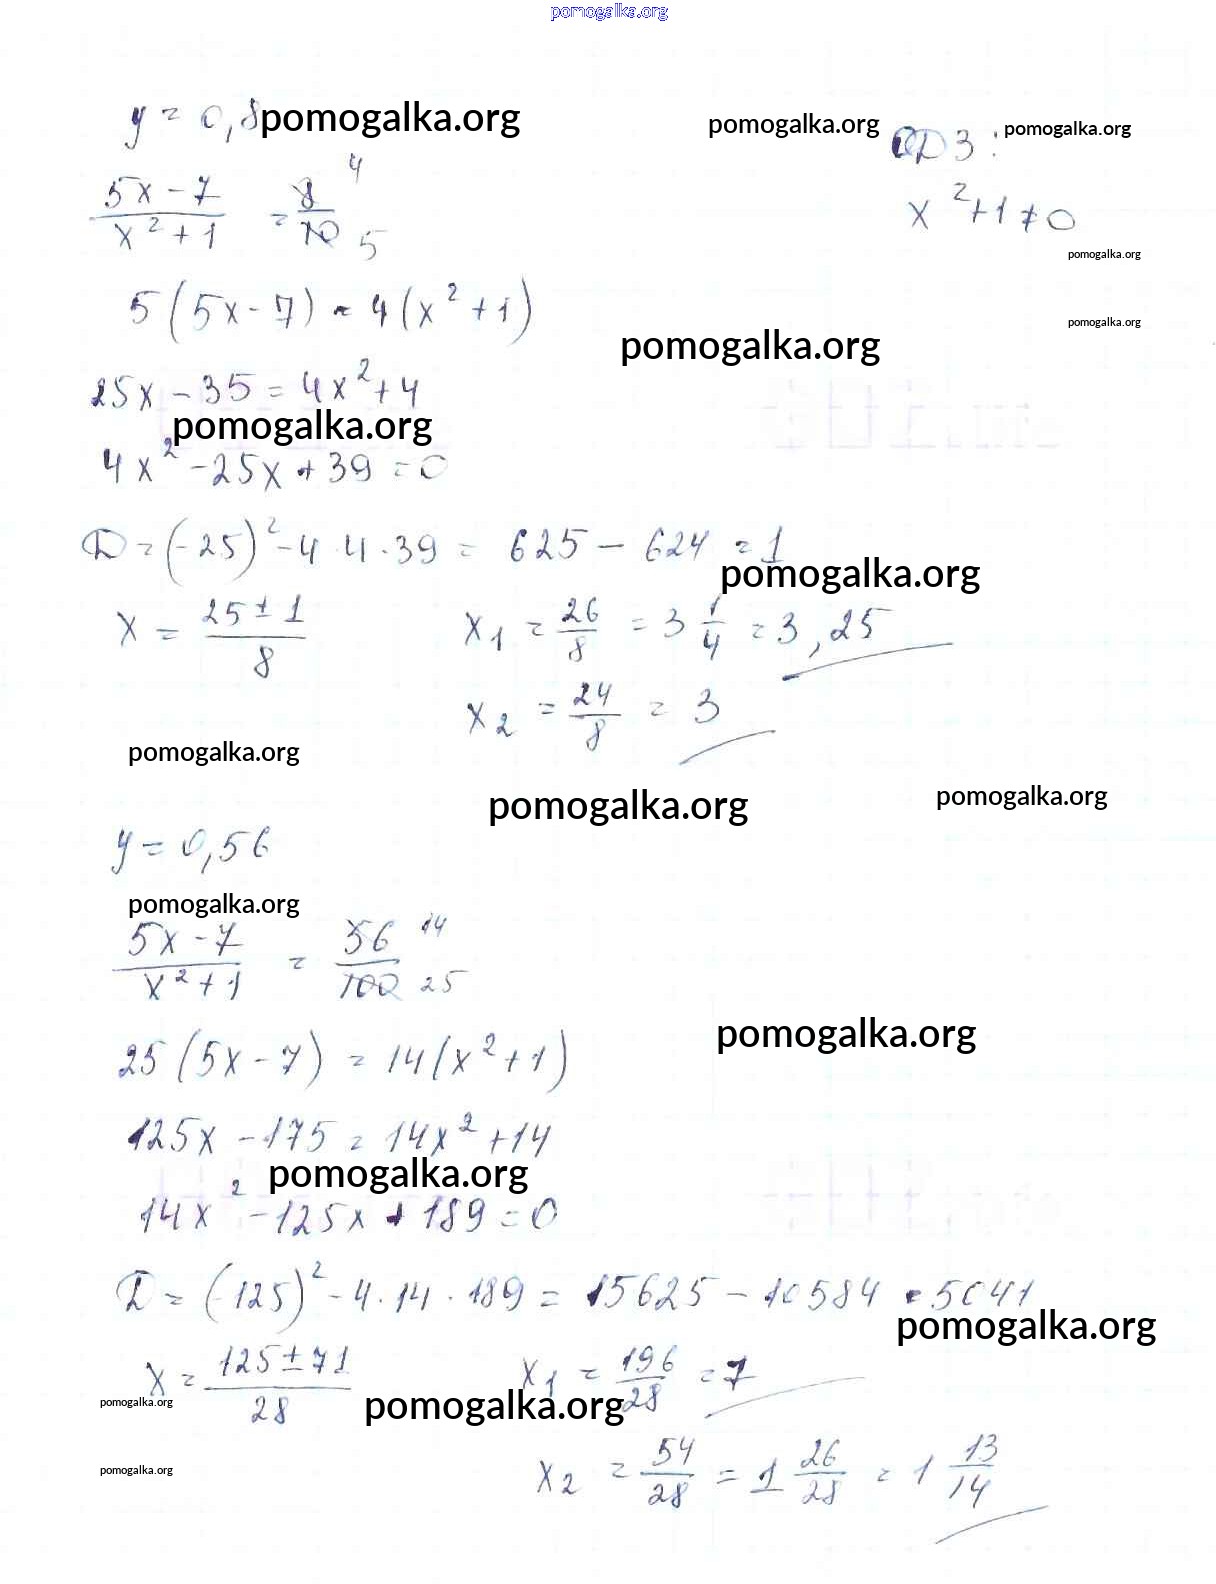 pomogalka.org
y = 0,8 pomogalka.org pomogalka.org ОДЗ: pomogalka.org
(5x - 7)/(x² + 1) = 8/10 4 5 x² + 1 ≠ 0
pomogalka.org
5(5x - 7) = 4(x² + 1) pomogalka.org
pomogalka.org
25x - 35 = 4x² + 4
pomogalka.org
4x² - 25x + 39 = 0
D = (-25)² - 4 · 4 · 39 = 625 - 624 = 1
pomogalka.org
x = (25 ± 1)/8 x₁ = 26/8 = 3 1/4 = 3,25
x₂ = 24/8 = 3
pomogalka.org
pomogalka.org pomogalka.org
y = 0,56
pomogalka.org
(5x - 7)/(x² + 1) = 56/100 14 25
pomogalka.org
25(5x - 7) = 14(x² + 1)
125x - 175 = 14x² + 14
pomogalka.org
14x² - 125x + 189 = 0
D = (-125)² - 4 · 14 · 189 = 15625 - 10584 = 5041
pomogalka.org
x = (125 ± 71)/28 x₁ = 196/28 = 7
pomogalka.org pomogalka.org
pomogalka.org x₂ = 54/28 = 1 26/28 = 1 13/14